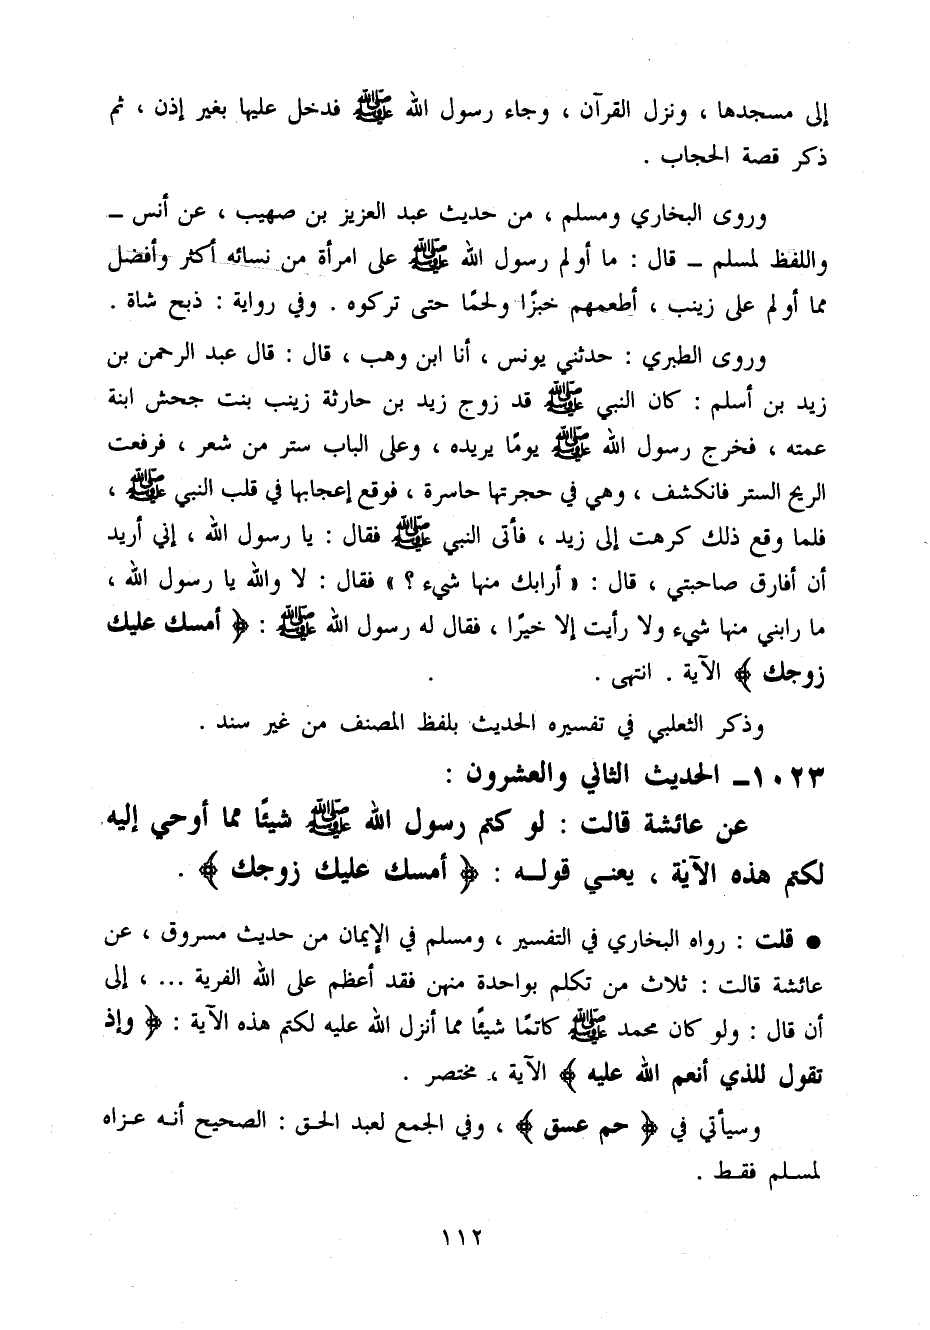 إلى مسجدها ، ونزل القرآن ، وجاء رسول الله ﷺ فدخل عليها بغير إذن ، ثم
ذكر قصة الحجاب .
وروى البخاري ومسلم ، من حديث عبد العزيز بن صهيب ، عن أنس ــ
واللفظ لمسلم ــ قال : ما أولم رسول الله ﷺ على امرأة من نسائه أكثر وأفضل
مما أولم على زينب ، أطعمهم خبزًا ولحمًا حتى تركوه . وفي رواية : ذبح شاة .
وروى الطبري : حدثني يونس ، أنا ابن وهب ، قال : قال عبد الرحمن بن
زيد بن أسلم : كان النبي ﷺ قد زوج زيد بن حارثة زينب بنت جحش ابنة
عمته ، فخرج رسول الله ﷺ يومًا يريده ، وعلى الباب ستر من شعر ، فرفعت
الريح الستر فانكشف ، وهي في حجرتها حاسرة ، فوقع إعجابها في قلب النبي ﷺ ،
فلما وقع ذلك كرهت إلى زيد ، فأتى النبي ﷺ فقال : يا رسول الله ، إني أريد
أن أفارق صاحبتي ، قال : « أرابك منها شيء ؟ » فقال : لا والله يا رسول الله ،
ما رابني منها شيء ولا رأيت إلا خيرًا ، فقال له رسول الله ﷺ : ﴿ أمسك عليك
زوجك ﴾ الآية . انتهى .
وذكر الثعلبي في تفسيره الحديث بلفظ المصنف من غير سند .
١٠٢٣ــ الحديث الثاني والعشرون :
عن عائشة قالت : لو كتم رسول الله ﷺ شيئًا مما أوحي إليه
لكتم هذه الآية ، يعنـي قولـه : ﴿ أمسك عليك زوجك ﴾ .
● قلت : رواه البخاري في التفسير ، ومسلم في الإيمان من حديث مسروق ، عن
عائشة قالت : ثلاث من تكلم بواحدة منهن فقد أعظم على الله الفرية ... ، إلى
أن قال : ولو كان محمد ﷺ كاتمًا شيئًا مما أنزل الله عليه لكتم هذه الآية : ﴿ وإذ
تقول للذي أنعم الله عليه ﴾ الآية ، مختصر .
وسيأتي في ﴿ حم عسق ﴾ ، وفي الجمع لعبد الحـق : الصحيح أنـه عـزاه
لمسـلم فقـط .
١١٢